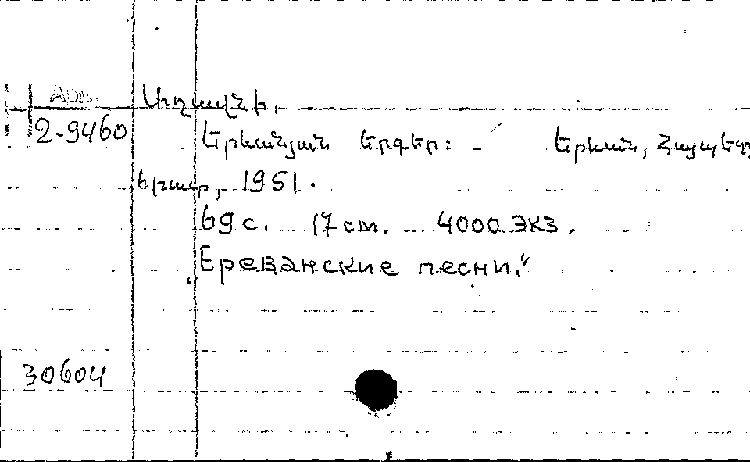 Աղավնի.
2-9460
Երևանյան երգեր: — Երևան, Հայպետ
հրատ, 1951.
69 с. 17 см. 4000 экз.
„Ереванские песни."
30604